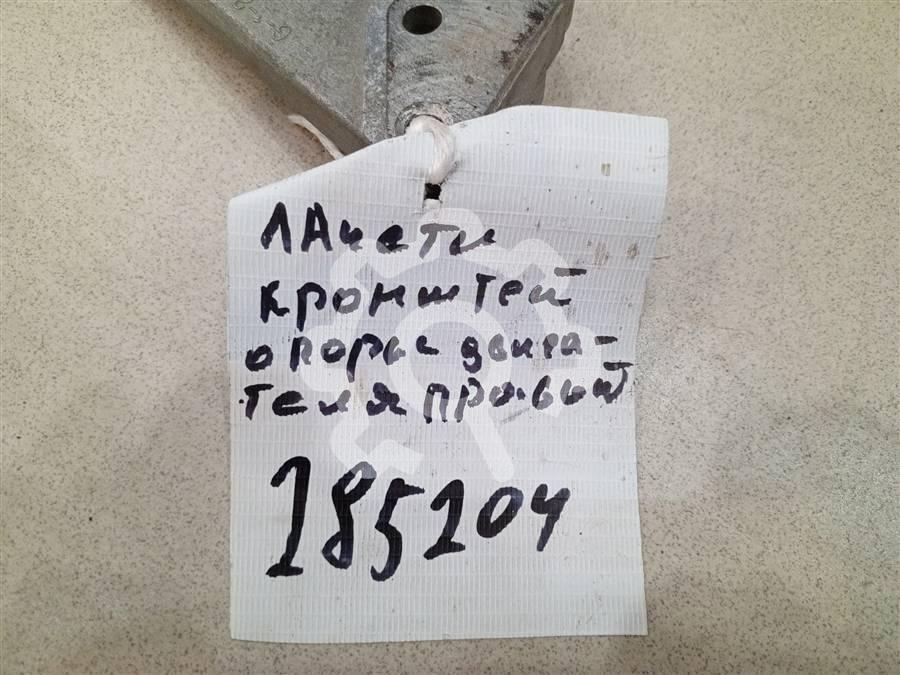 ЛАчетти
кронштей
опоры двига-
теля правый
185204